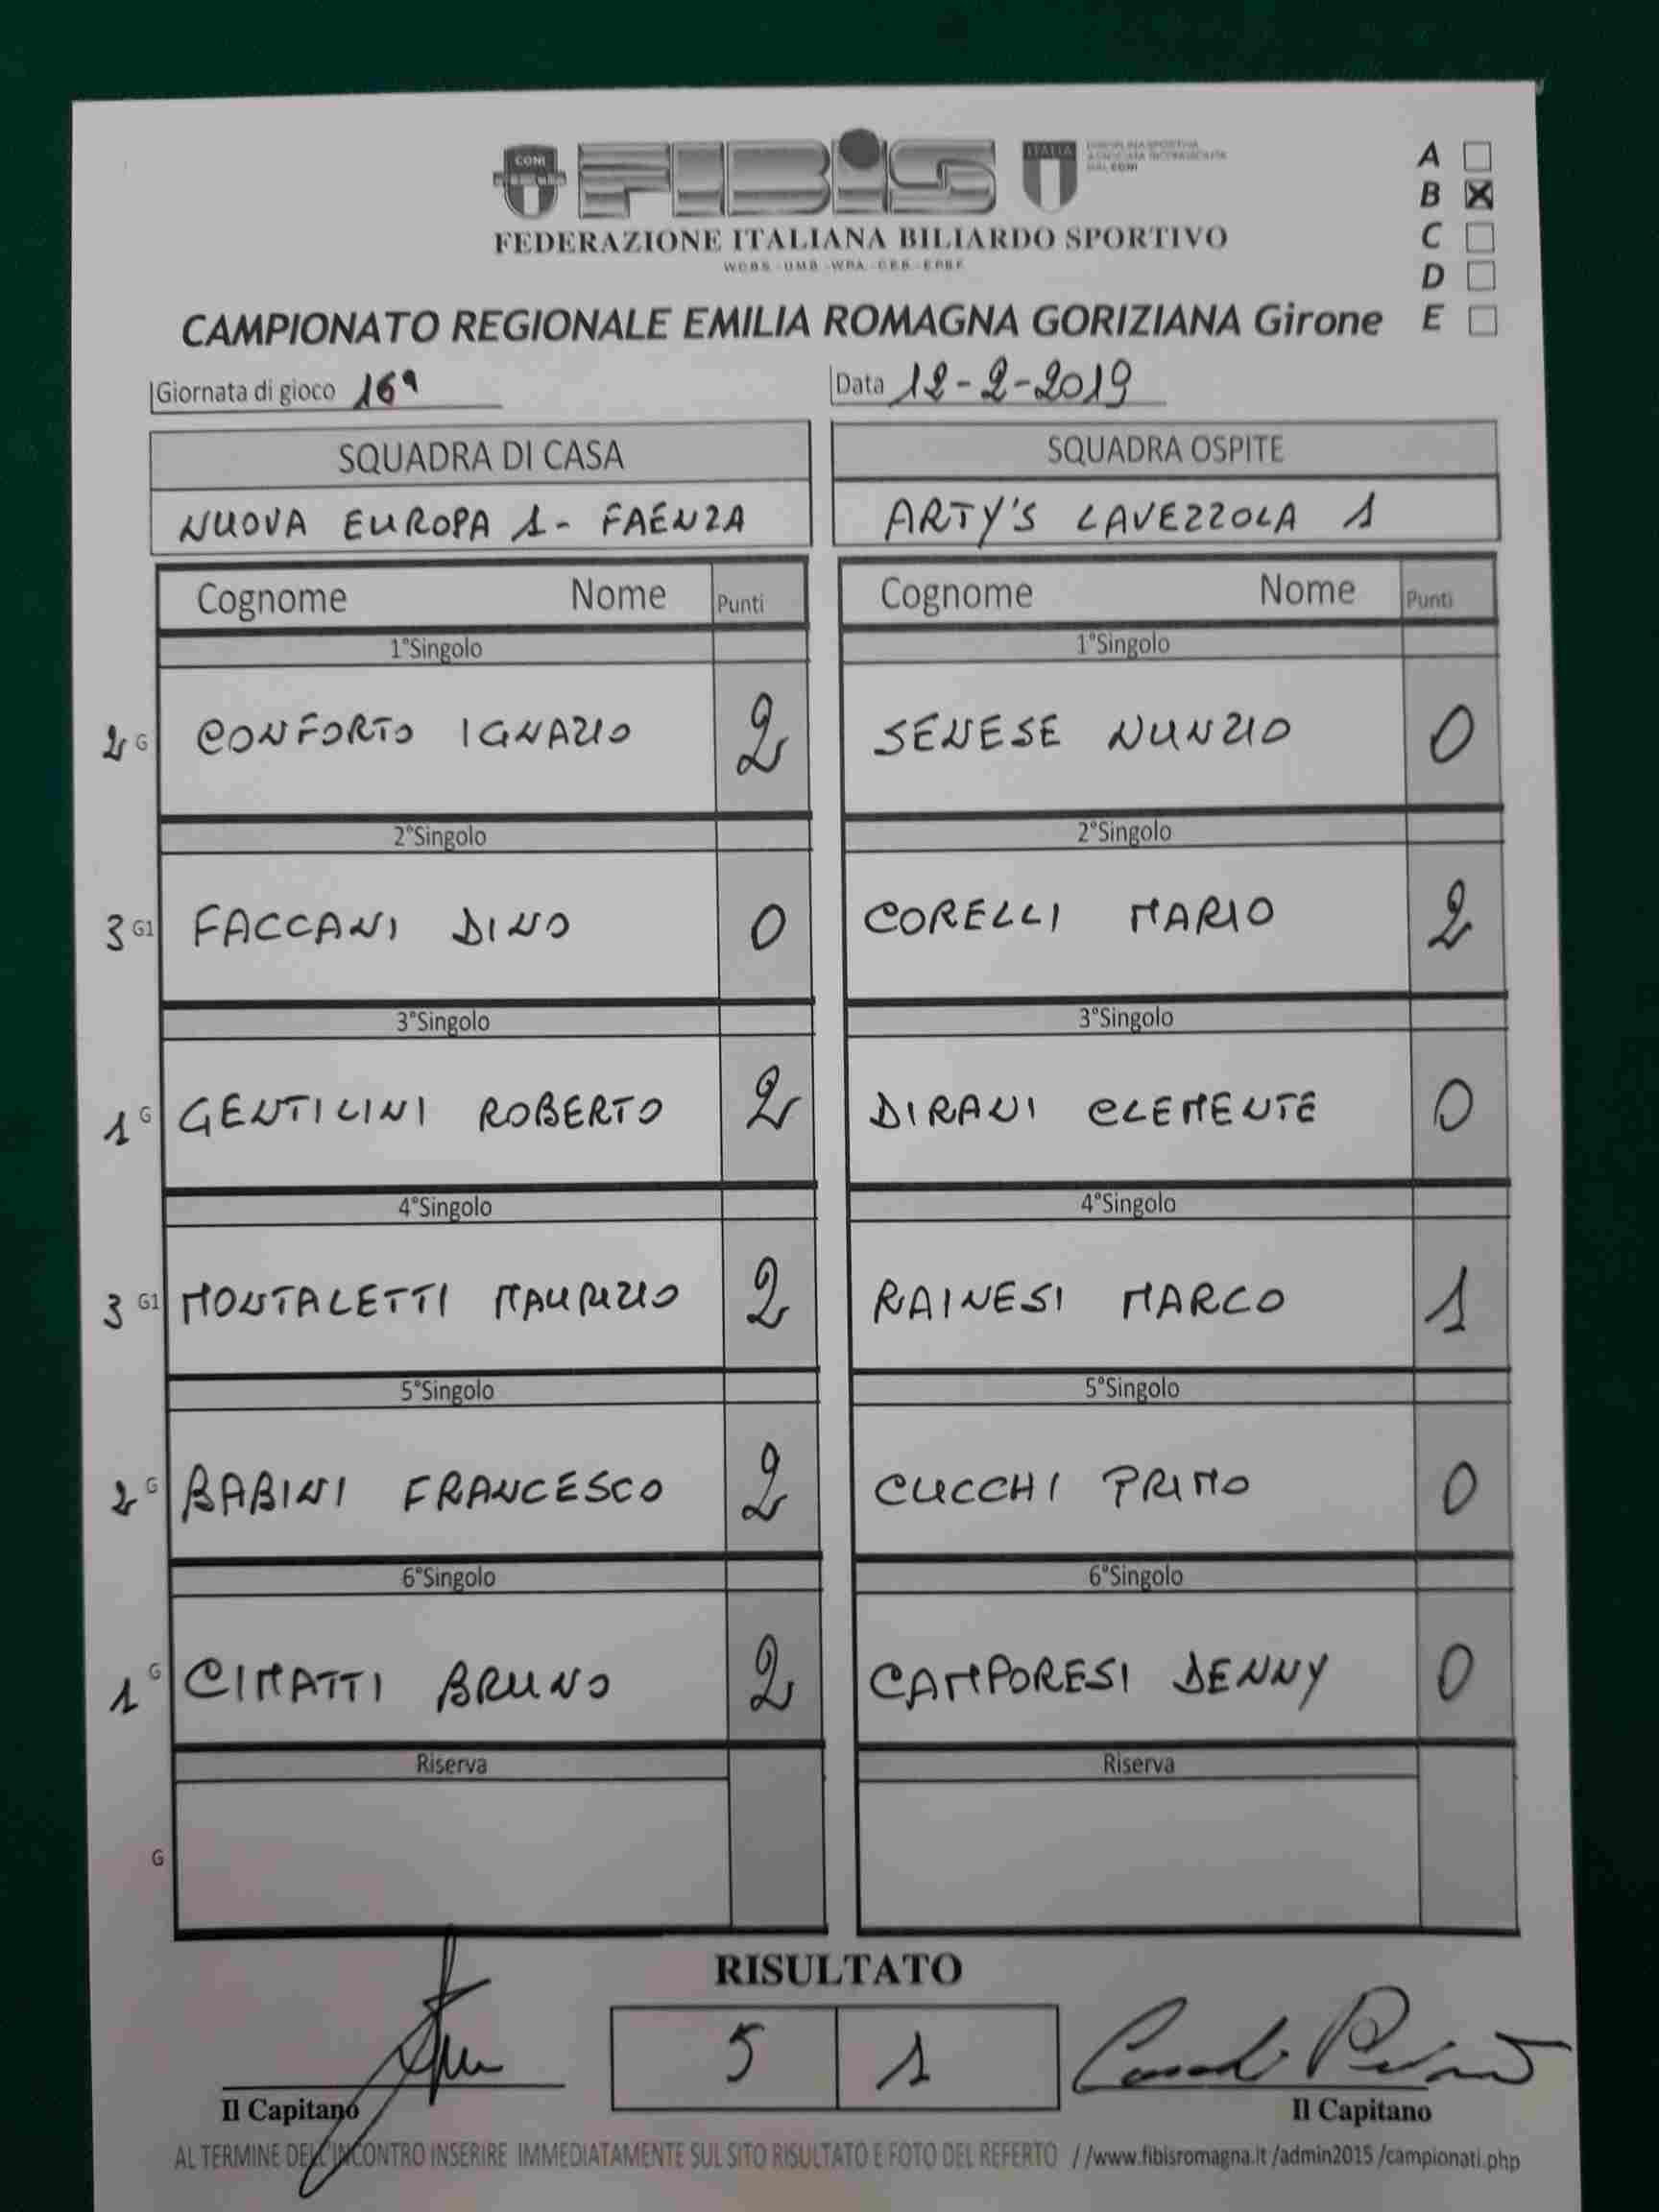 CONI
FIBiS
ITALIA
FEDERAZIONE ITALIANA BILIARDO SPORTIVO
WCBS - UMB - WPA - CEB - EPBF
A
B X
C
D
CAMPIONATO REGIONALE EMILIA ROMAGNA GORIZIANA Girone E
Giornata di gioco 16ª Data 12-2-2019
SQUADRA DI CASA SQUADRA OSPITE
NUOVA EUROPA 1 - FAENZA ARTY'S LAVEZZOLA 1
Cognome Nome Punti Cognome Nome Punti
1°Singolo 1°Singolo
2 G CONFORTO IGNAZIO 2 SENESE NUNZIO 0
2°Singolo 2°Singolo
3 G1 FACCANI DINO 0 CORELLI MARIO 2
3°Singolo 3°Singolo
1 G GENTILINI ROBERTO 2 DIRANI CLEMENTE 0
4°Singolo 4°Singolo
3 G1 MONTALETTI MAURIZIO 2 RAINESI MARCO 1
5°Singolo 5°Singolo
2 G BABINI FRANCESCO 2 CUCCHI PRIMO 0
6°Singolo 6°Singolo
1 G CIMATTI BRUNO 2 CAMPORESI DENNY 0
Riserva Riserva
G
RISULTATO
5 1
Il Capitano Il Capitano
AL TERMINE DELL'INCONTRO INSERIRE IMMEDIATAMENTE SUL SITO RISULTATO E FOTO DEL REFERTO //www.fibisromagna.it /admin2015 /campionati.php